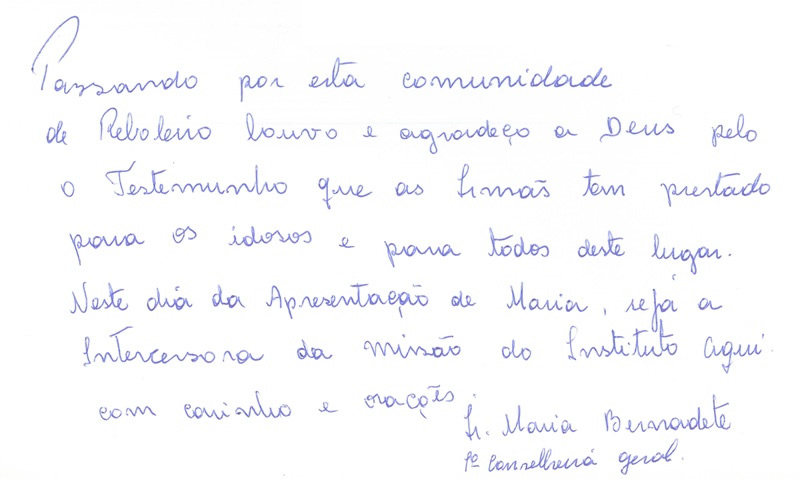 Passando por esta comunidade
de Reboleiro louvo e agradeço a Deus pelo
o Testemunho que as Irmãs tem prestado
para os idosos e para todos deste lugar.
Neste dia da Apresentação de Maria, seja a
Intercessora da missão do Instituto aqui.
com carinho e orações.
Ir. Maria Bernadete
1ª Conselheira geral.